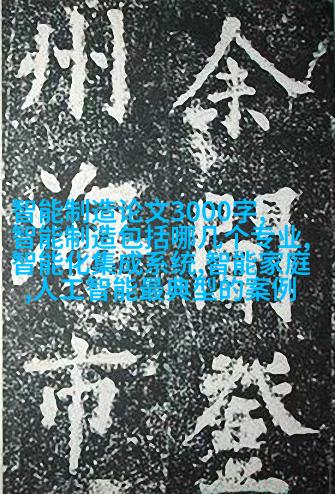 余聞登
州海市
智能制造论文3000字,
智能制造包括哪几个专业,
智能化集成系统,智能家庭
,人工智能最典型的案例